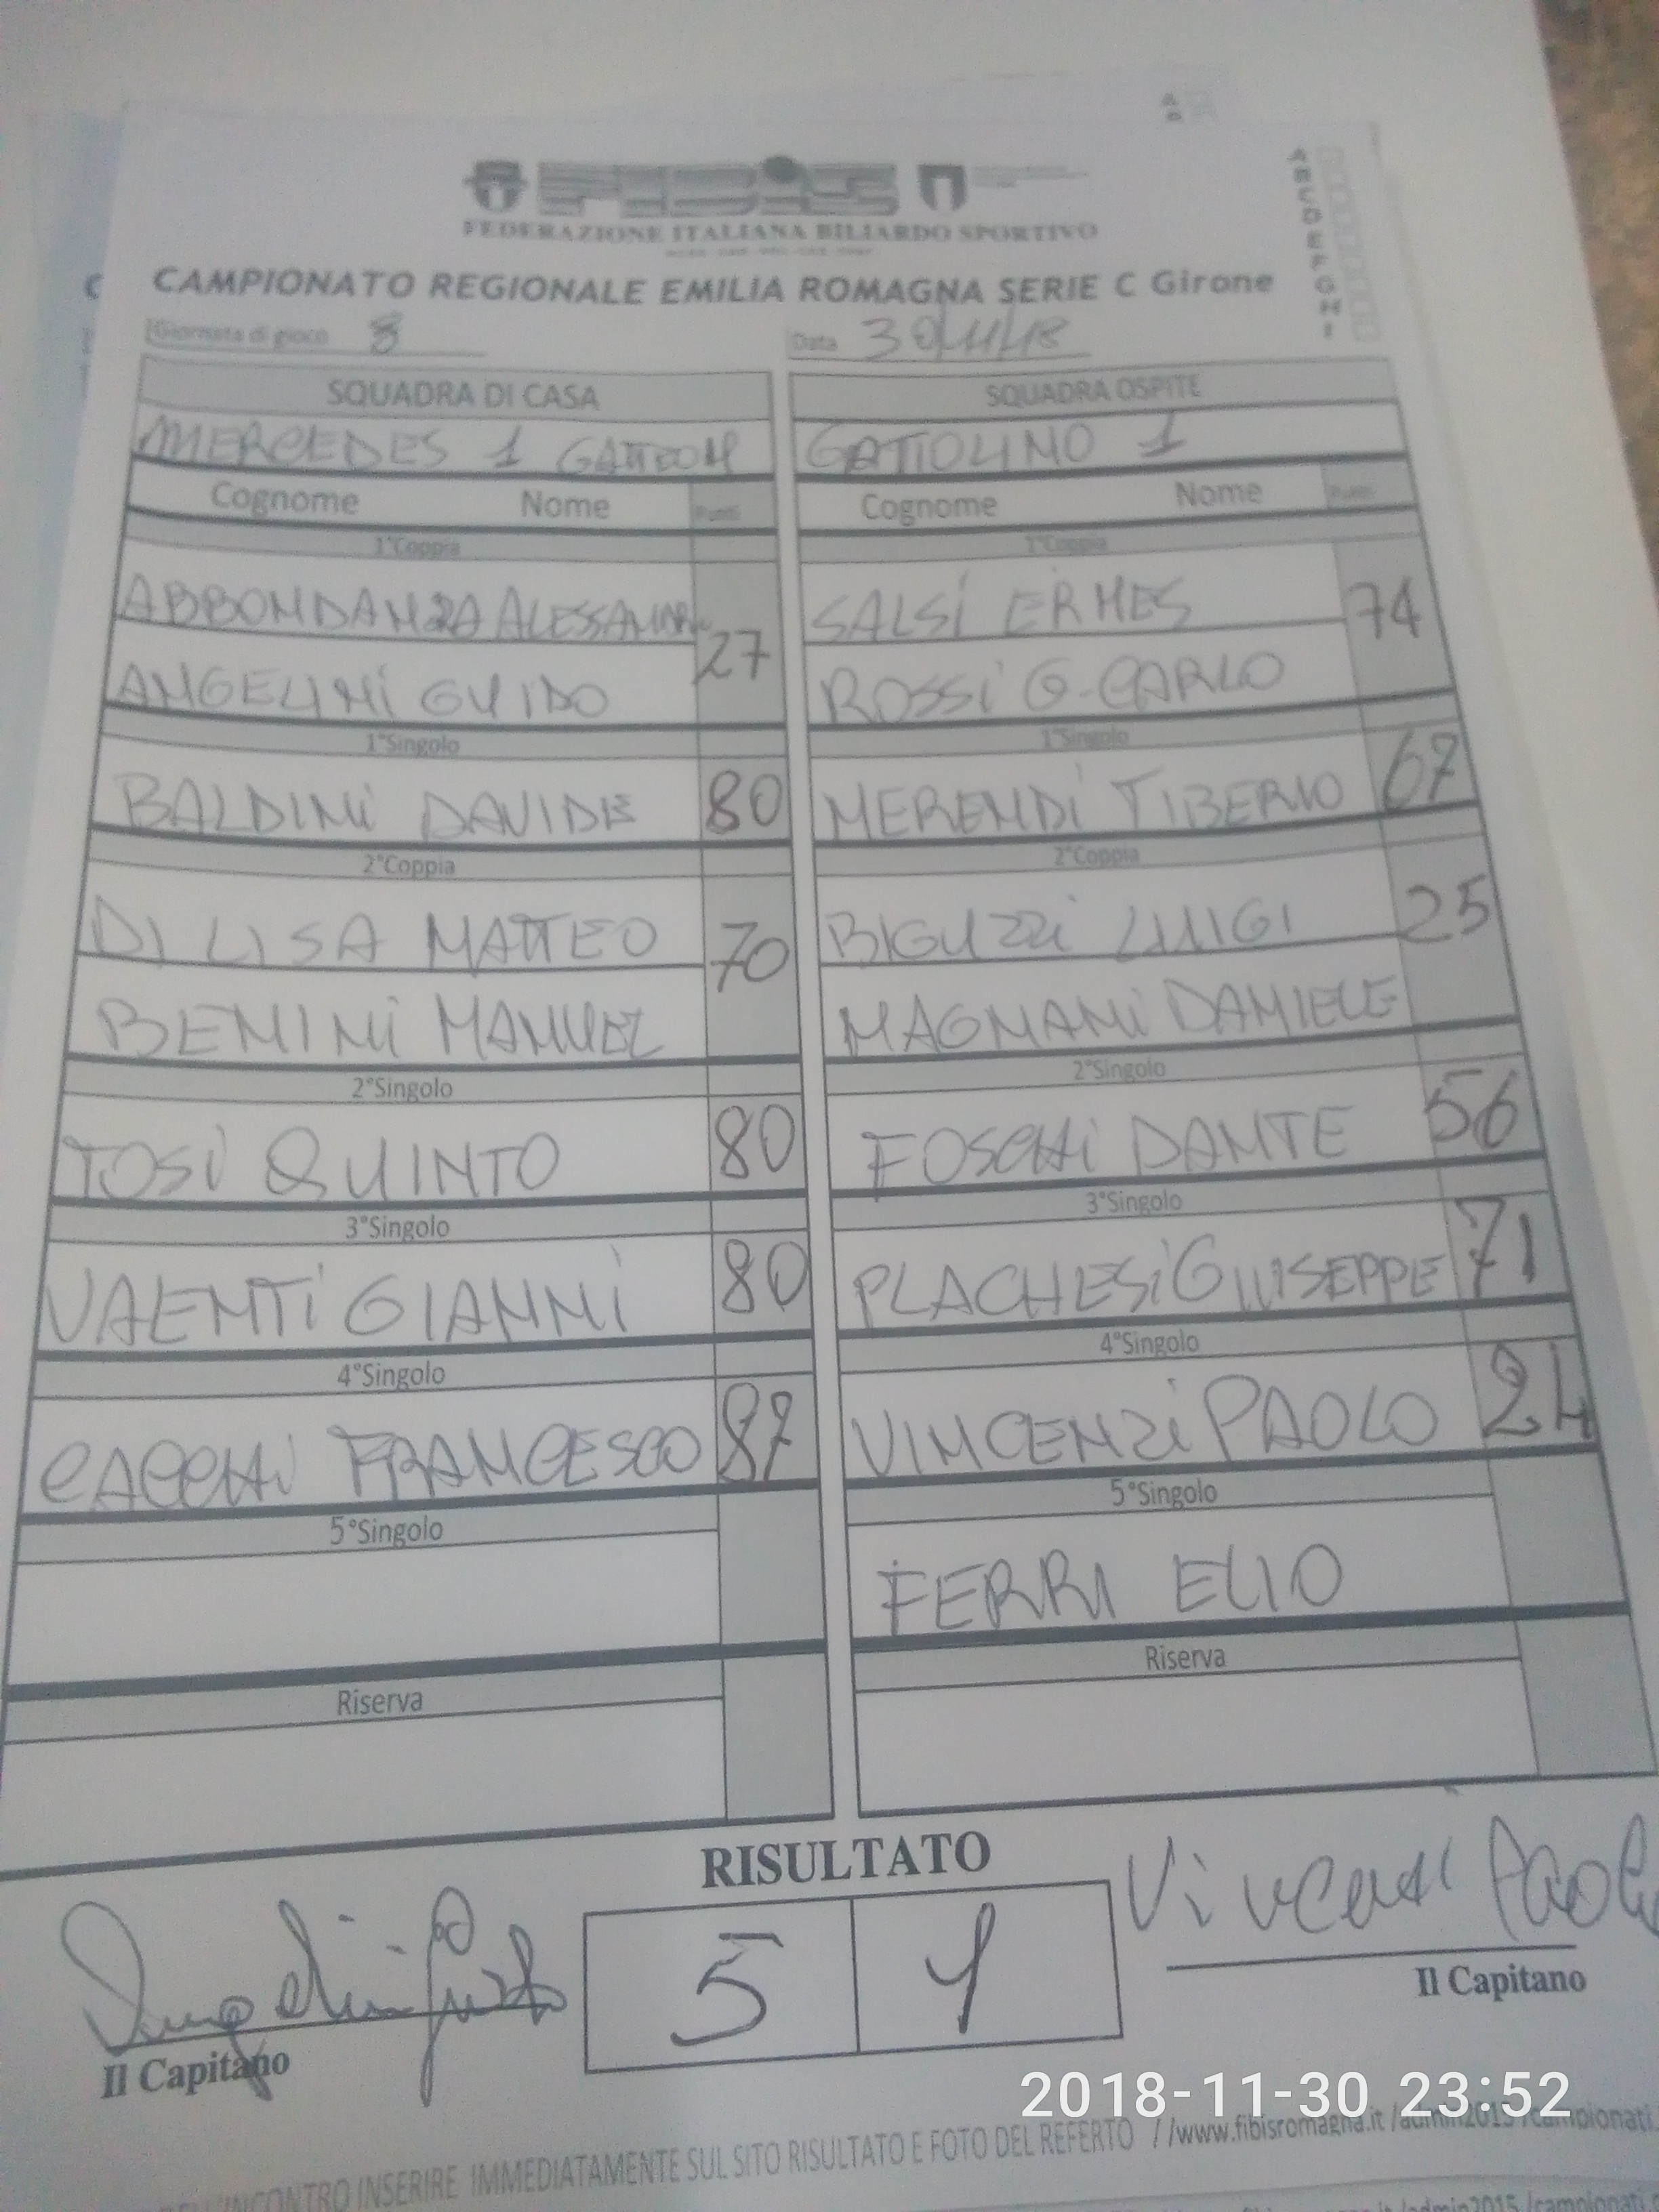 FIBiS
FEDERAZIONE ITALIANA BILIARDO SPORTIVO
CAMPIONATO REGIONALE EMILIA ROMAGNA SERIE C Girone
A
B
C
D
E
F
G
H
I
Giornata di gioco 8 Data 30/11/18
SQUADRA DI CASA SQUADRA OSPITE
MERCEDES 1 GATTEO M GATTOLINO 1
Cognome Nome Punti Cognome Nome Punti
1°Coppia 1°Coppia
ABBONDANZA ALESSANDRO 27 SALSI ERMES 74
ANGELINI GUIDO ROSSI G.CARLO
1°Singolo 1°Singolo
BALDINI DAVIDE 80 MERENDI TIBERIO 67
2°Coppia 2°Coppia
DI LISA MATTEO 70 BIGUZZI LUIGI 25
BENINI MANUEL MAGNANI DANIELE
2°Singolo 2°Singolo
TOSI QUINTO 80 FOSCHI DANTE 56
3°Singolo 3°Singolo
VAENTI GIANNI 80 PLACHESI GIUSEPPE 71
4°Singolo 4°Singolo
CACCHI FRANCESCO 87 VINCENZI PAOLO 24
5°Singolo 5°Singolo
FERRI ELIO
Riserva Riserva
RISULTATO
5 1
Angelini Guido Vincenzi Paolo
Il Capitano Il Capitano
2018-11-30 23:52
INCONTRO INSERIRE IMMEDIATAMENTE SUL SITO RISULTATO E FOTO DEL REFERTO //www.fibisromagna.it/admin2015/campionati.